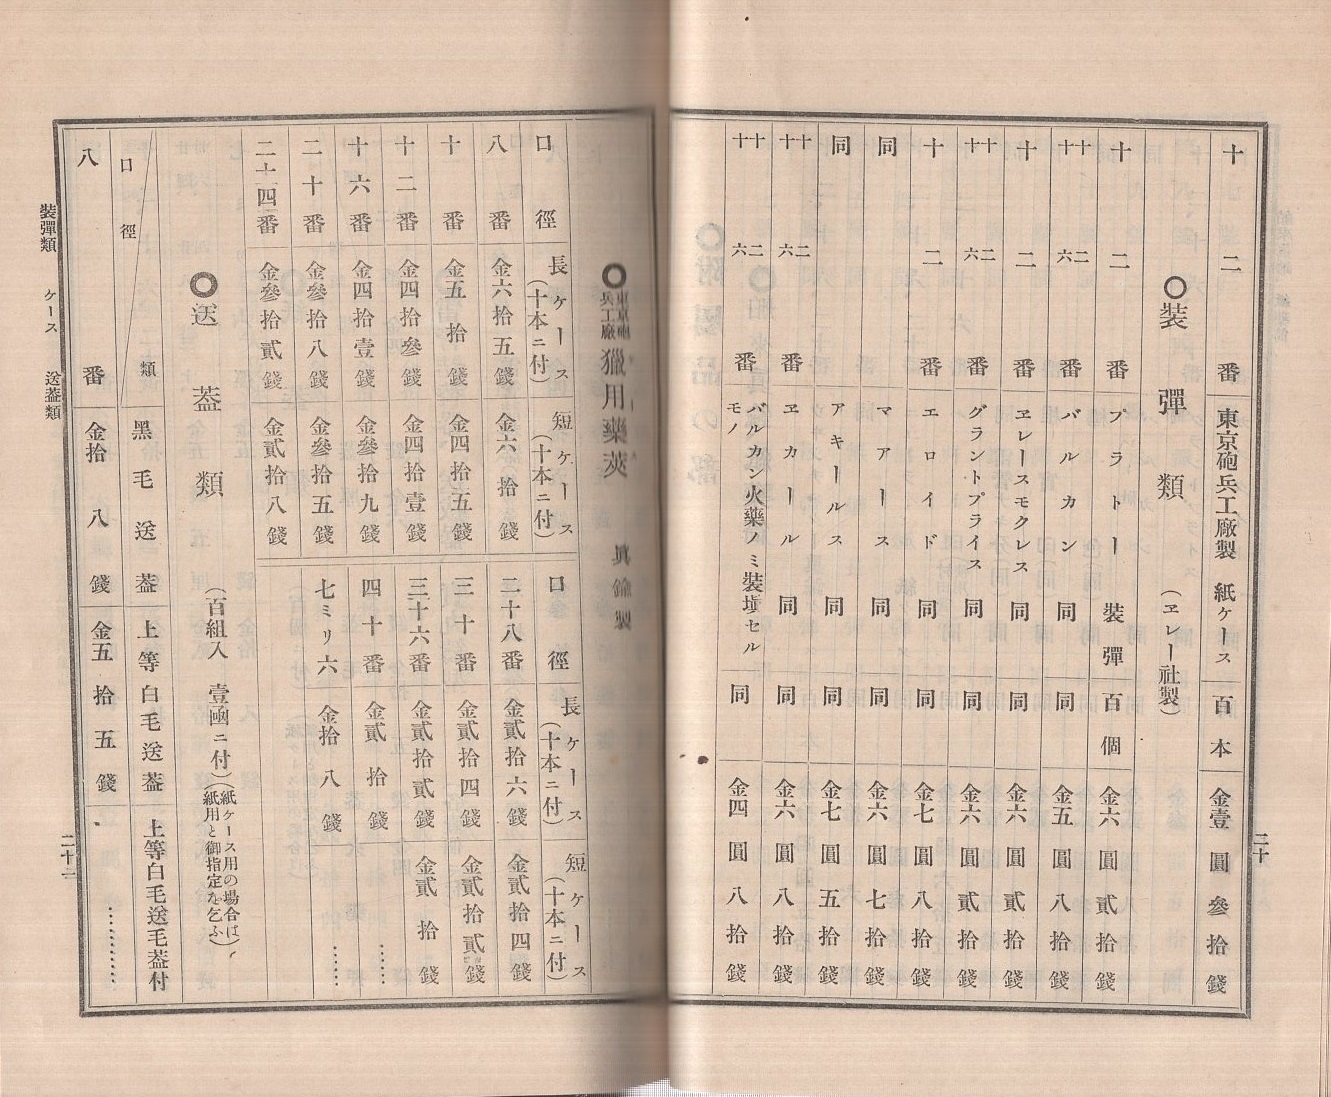 十二番 東京砲兵工廠製 紙ケース 百本 金壹圓參拾錢
◯裝彈類 (ヱレー社製)
十二番 プラトー 裝彈百個 金六圓貳拾錢
十六番 十二番 バルカン 同 同 金五圓八拾錢
十二番 ヱレースモクレス 同 同 金六圓貳拾錢
十六番 十二番 グラントプライス 同 同 金六圓貳拾錢
十二番 エロイド 同 同 金七圓八拾錢
同 マアース 同 同 金六圓七拾錢
同 アキールス 同 同 金七圓五拾錢
十六番 十二番 ヱカール 同 同 金六圓八拾錢
十六番 十二番 バルカン火藥ノミ裝塡セルモノ 同 金四圓八拾錢
二十
◯東京砲兵工廠 獵用藥莢 眞鍮製
口徑 長ケース(十本ニ付) 短ケース(十本ニ付)
八番 金六拾五錢 金六拾錢
十番 金五拾錢 金四拾五錢
十二番 金四拾參錢 金四拾壹錢
十六番 金四拾壹錢 金參拾九錢
二十番 金參拾八錢 金參拾五錢
二十四番 金參拾貳錢 金貳拾八錢
口徑 長ケース(十本ニ付) 短ケース(十本ニ付)
二十八番 金貳拾六錢 金貳拾四錢
三十番 金貳拾四錢 金貳拾貳錢
三十六番 金貳拾貳錢 金貳拾錢
四十番 金貳拾錢 ……
七ミリ六 金拾八錢 ……
◯送葢類 (百組入 壹凾ニ付)(紙ケース用の場合は紙用と御指定を乞ふ)
口徑 類 黑毛送葢 上等白毛送葢 上等白毛送毛葢付
八番 金拾八錢 金五拾五錢 ………
裝彈類 ケース 送葢類
二十一